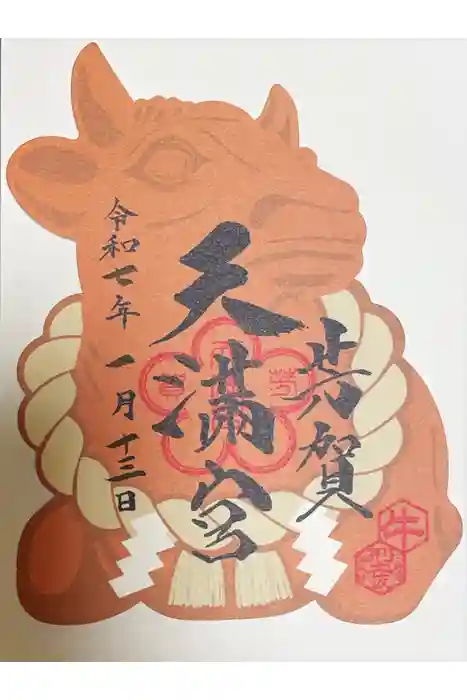 芳賀
天満宮
令和七年 一月十三日
芳
牛